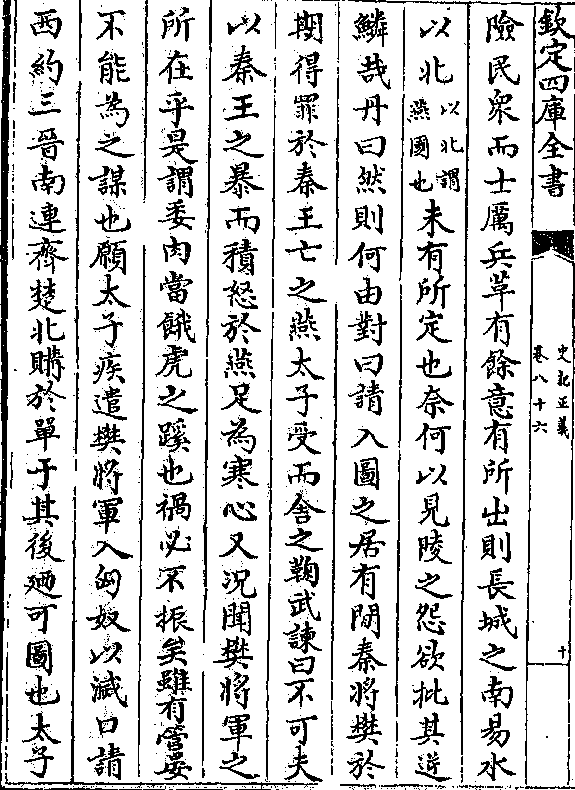 欽定四庫全書
史記正義
卷八十六
十
險民衆而士厲兵革有餘意有所出則長城之南易水
以北以北謂燕國也未有所定也奈何以見陵之怨欲批其逆
鱗哉丹曰然則何由對曰請入圖之居有間秦將樊於
期得罪於秦王亡之燕太子受而舍之鞠武諫曰不可夫
以秦王之暴而積怒於燕足為寒心又況聞樊將軍之
所在乎是謂委肉當餓虎之蹊也禍必不振矣雖有管晏
不能為之謀也願太子疾遣樊將軍入匈奴以滅口請
西約三晉南連齊楚北購於單于其後廼可圖也太子